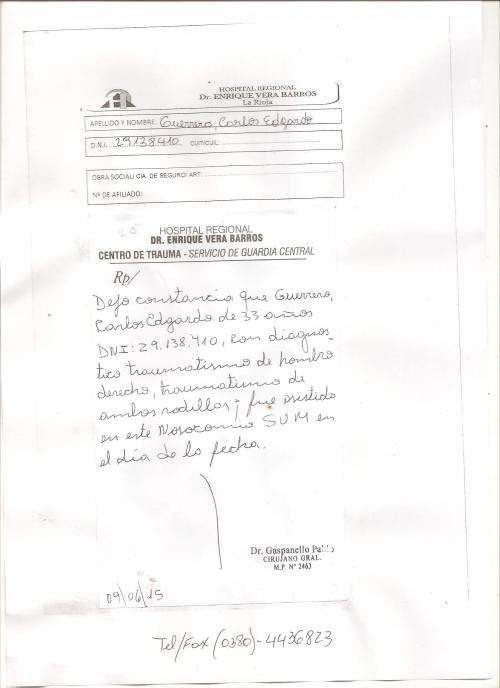 HOSPITAL REGIONAL
Dr. ENRIQUE VERA BARROS
La Rioja
APELLIDO Y NOMBRE: Guerrero, Carlos Edgardo
D.N.I.: 29.138.410 CUIT/CUIL:
OBRA SOCIAL/ CIA. DE SEGURO/ ART:
Nº DE AFILIADO:
HOSPITAL REGIONAL
DR. ENRIQUE VERA BARROS
CENTRO DE TRAUMA - SERVICIO DE GUARDIA CENTRAL
Rp/
Dejo constancia que Guerrero,
Carlos Edgardo de 33 años
DNI: 29.138.410, con diagnos
tico traumatismo de hombro
derecho, traumatismo de
ambas rodillas; fue asistido
en este Nosocomio SUM en
el día de la fecha.
Dr. Gaspanello Pablo
CIRUJANO GRAL.
M.P. Nº 2463
09/06/15
Tel/Fax (0380)-4436823